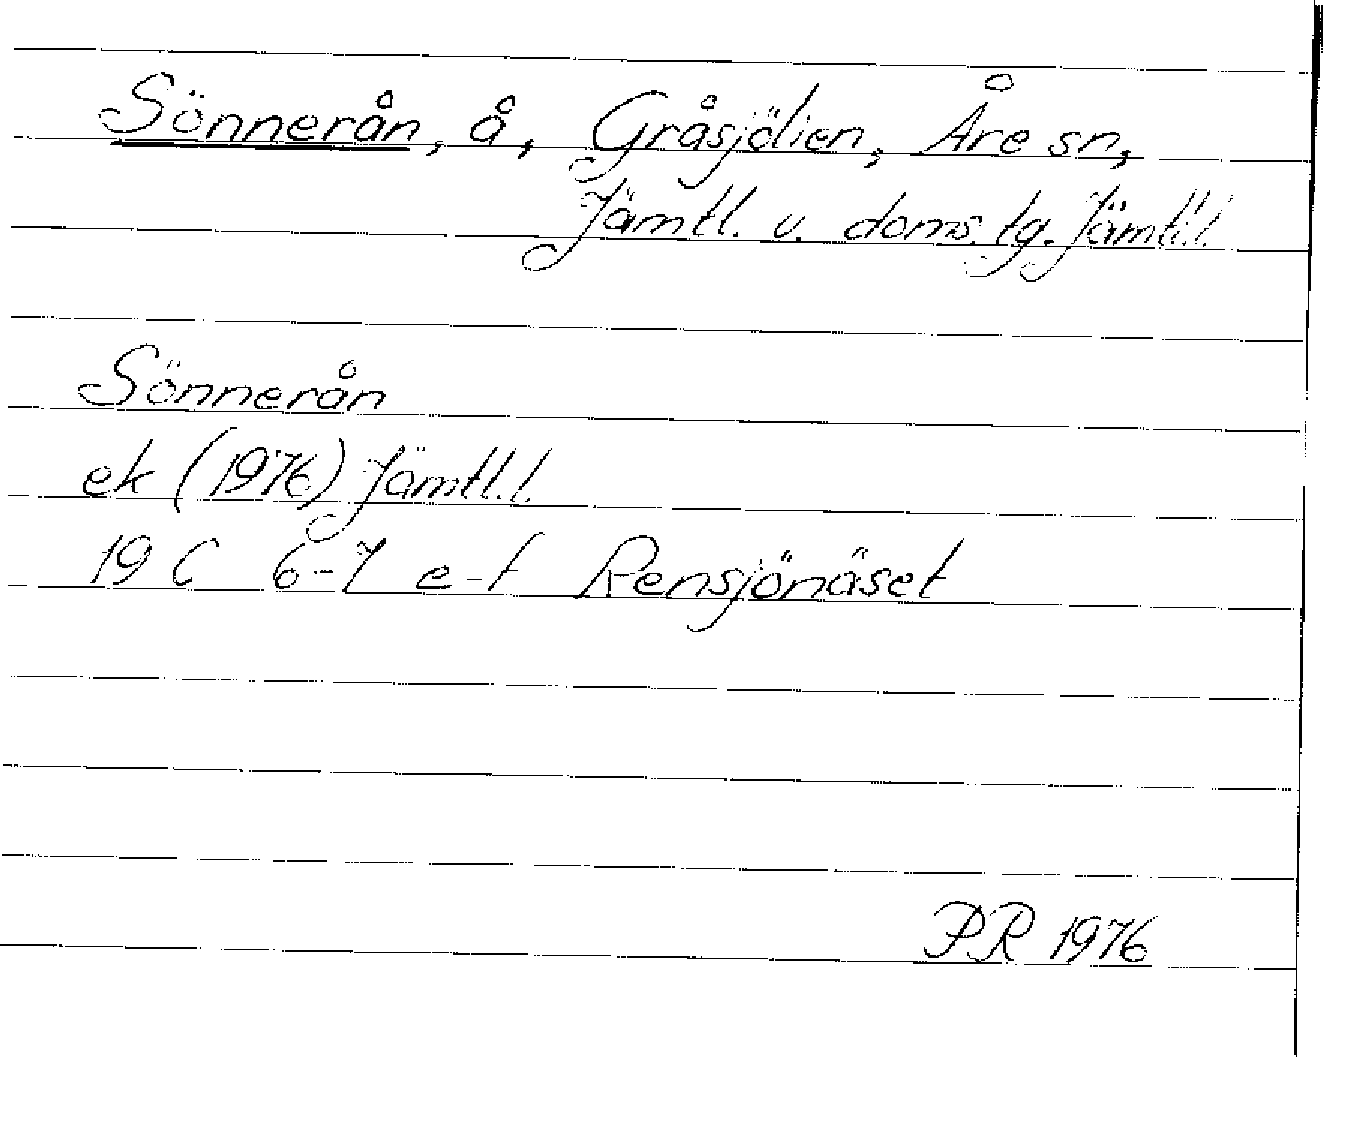 Sönnerån, å, Gråsjölien, Åre sn,
Jämtl. v. doms. lg. Jämtl.l.
Sönnerån
ek (1976) Jämtl.l.
19 C 6-7 e-f Rensjönäset
PR 1976